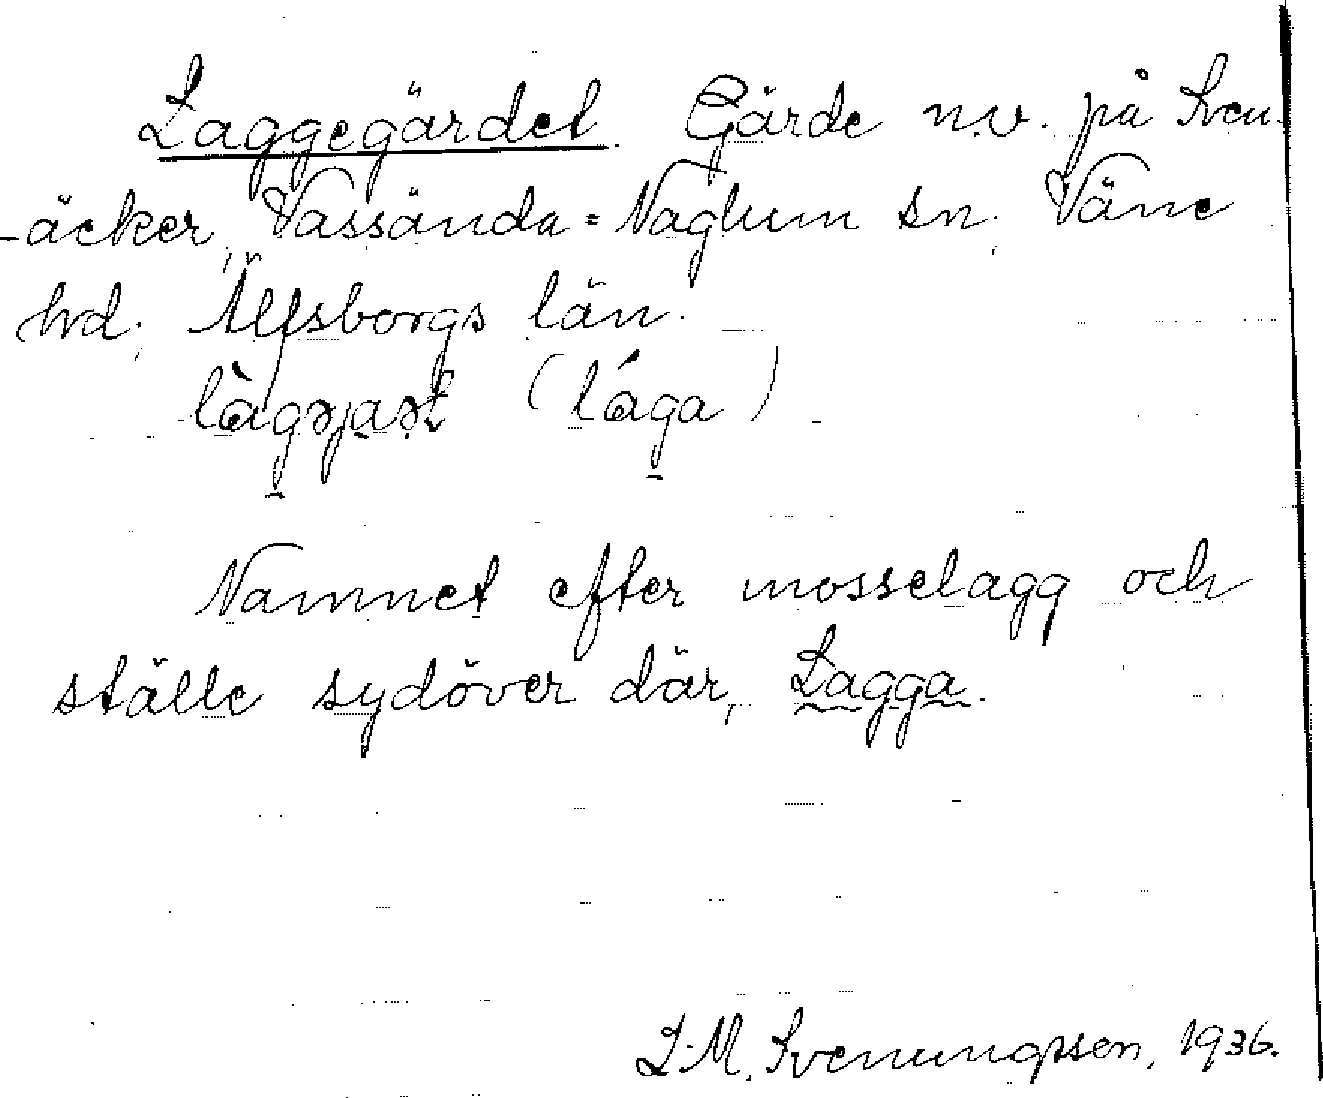 Laggegärdet. Gärde n.v. på Sven-
äcker, Vassända=Naglum sn, Väne
hd, Älfsborgs län.
(låga)
Namnet efter mosselagg och
ställe sydöver där, Lagga.
L.M. Svenungsson, 1936.